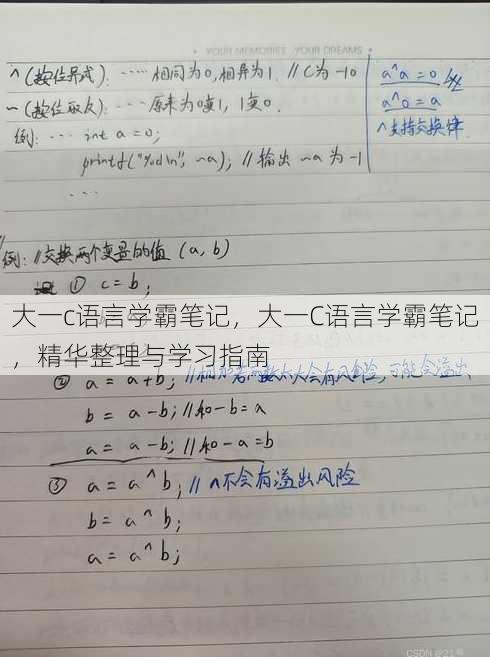 YOUR MEMORIES, YOUR DREAMS
^(按位异或): ····· 相同为0,相异为1. //C为-10
a^a=0
~(按位取反): ··· 原来为0变1, 1变0.
a^0=a
^支持交换律
例: ··· int a=0;
printf("%d\n", ~a); //输出 ~a 为 -1
···
例: //交换两个变量的值 (a, b)
① c=b;
大一c语言学霸笔记，大一C语言学霸笔记
，精华整理与学习指南
② a = a+b; //相加若两数太大会有风险,可能会溢出.
b = a-b; //和-b=a
a = a-b; //和-a=b
③ a = a^b; //^不会有溢出风险
b = a^b;
a = a^b;
CSDN @21号